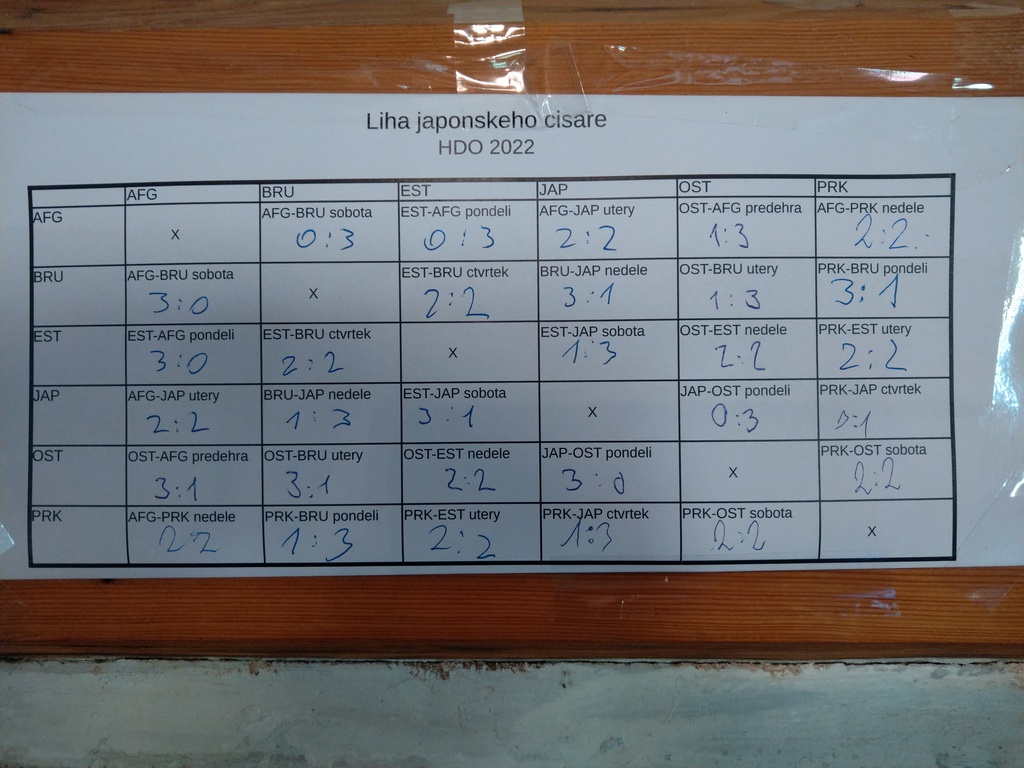 Liha japonskeho cisare
HDO 2022
AFG BRU EST JAP OST PRK
AFG AFG-BRU sobota EST-AFG pondeli AFG-JAP utery OST-AFG predehra AFG-PRK nedele
X 0:3 0:3 2:2 1:3 2:2
BRU AFG-BRU sobota EST-BRU ctvrtek BRU-JAP nedele OST-BRU utery PRK-BRU pondeli
3:0 X 2:2 3:1 1:3 3:1
EST EST-AFG pondeli EST-BRU ctvrtek EST-JAP sobota OST-EST nedele PRK-EST utery
3:0 2:2 X 1:3 2:2 2:2
JAP AFG-JAP utery BRU-JAP nedele EST-JAP sobota JAP-OST pondeli PRK-JAP ctvrtek
2:2 1:3 3:1 X 0:3
OST OST-AFG predehra OST-BRU utery OST-EST nedele JAP-OST pondeli PRK-OST sobota
3:1 3:1 2:2 3:0 X 2:2
PRK AFG-PRK nedele PRK-BRU pondeli PRK-EST utery PRK-JAP ctvrtek PRK-OST sobota
2:2 1:3 2:2 1:3 2:2 X